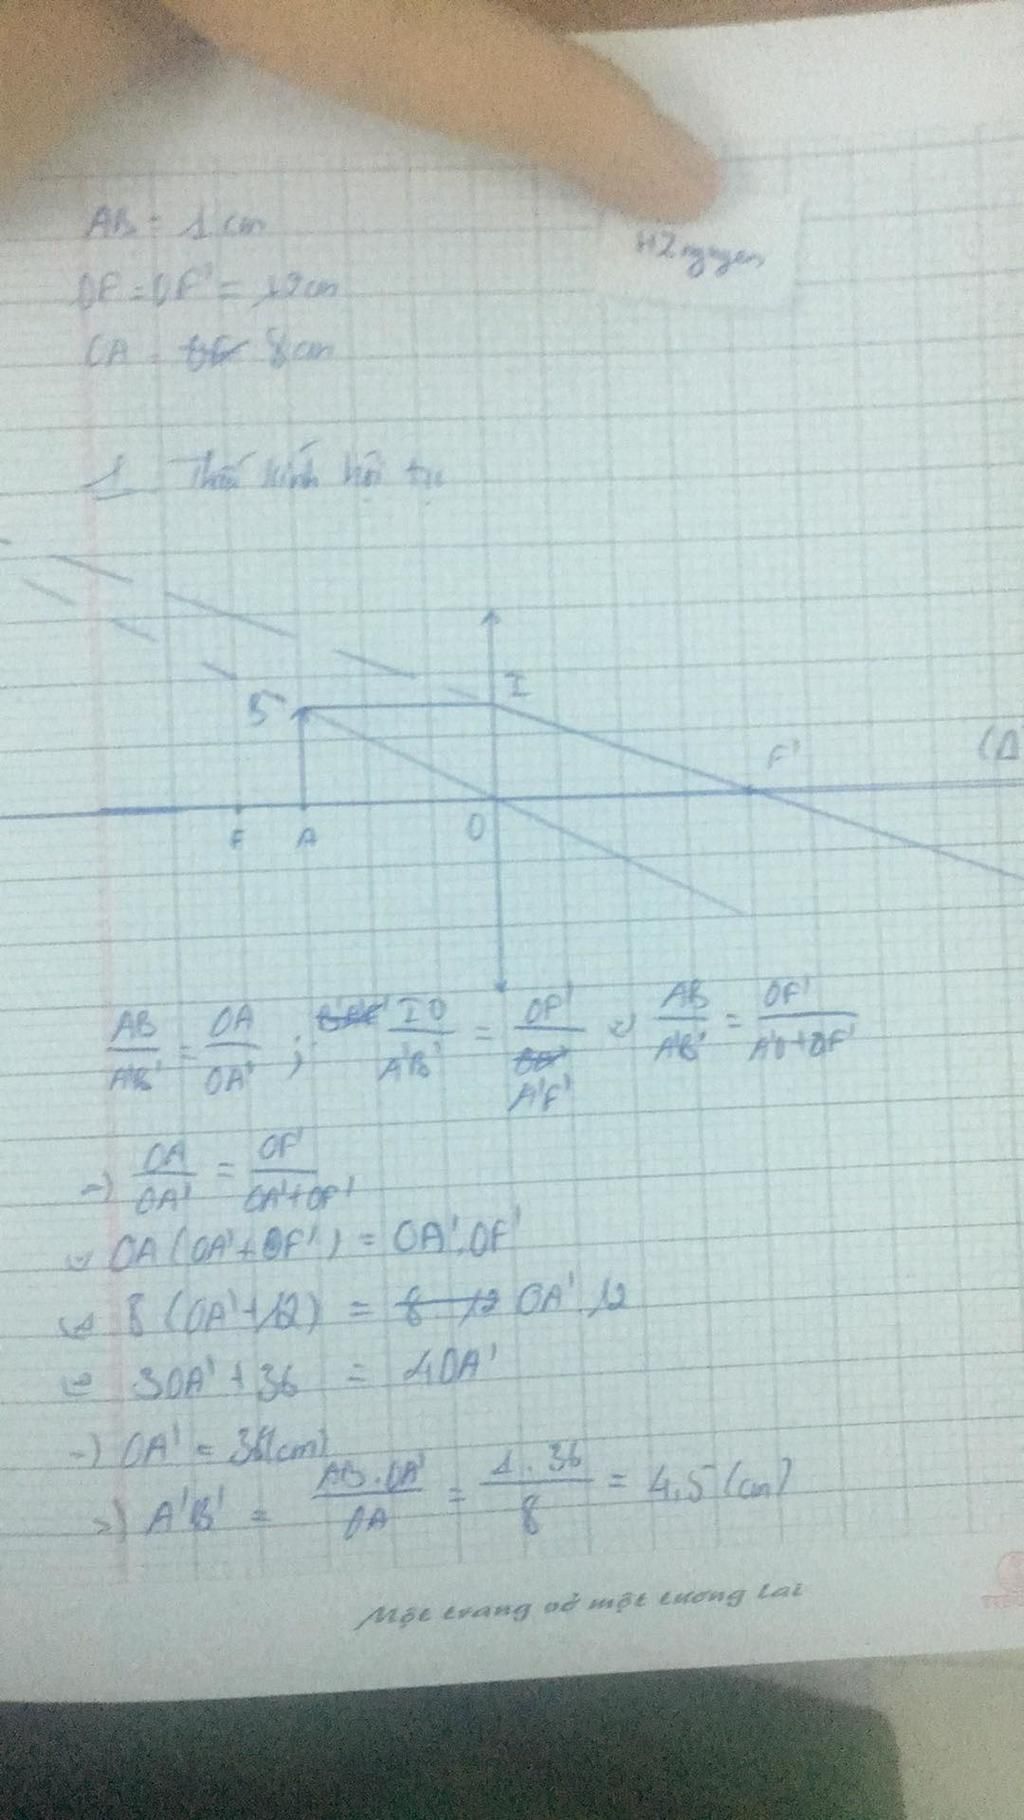 AB = 1 cm
H2nguyen
OF = OF' = 12cm
OA = 8cm
1 Thấu kính hội tụ
B I
F' (Δ
F A O
AB/A'B' = OA/OA' ; IO/A'B' = OF'/A'F' => AB/A'B' = OF'/A'O+OF'
=> OA/OA' = OF'/OA'+OF'
<=> OA(OA'+OF') = OA'.OF'
<=> 8(OA'+12) = OA'.12
<=> 3OA'+36 = 4OA'
=> OA' = 36(cm)
=> A'B' = AB.OA'/OA = 1.36/8 = 4,5 (cm)
Một trang vở một tương lai